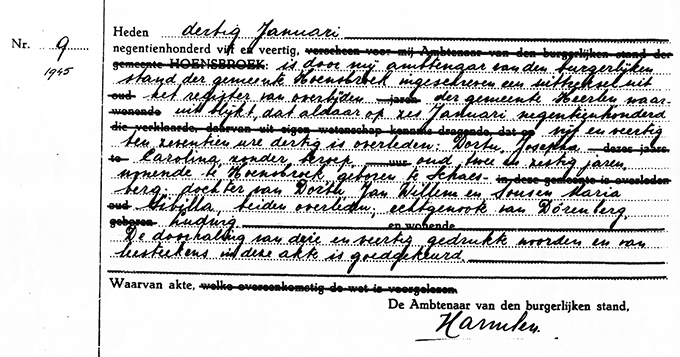 Nr. 9
1945
Heden dertig Januari
negentienhonderd vijf en veertig, verscheen voor mij Ambtenaar van den burgerlijken stand der
gemeente HOENSBROEK: is door mij ambtenaar van den burgerlijken
stand der gemeente Hoensbroek ingeschreven een uittreksel uit
oud het register van overlijden jaren der gemeente Heerlen waar-
wonende uit blijkt, dat aldaar op zes Januari negentienhonderd
die verklaarde, daarvan uit eigen wetenschap kennis dragende, dat op vijf en veertig
ten zeventien ure dertig is overleden: Dortu, Josepha dezes jaars
te Carolina, zonder beroep, uur oud twee en zestig jaren,
wonende te Hoensbroek geboren te Schaes- in deze gemeente is overleden
berg, dochter van Dortu Jan Willem en Maria
oud Sibilla, beiden overleden, echtgenoot van Dörenberg,
geboren Ludwig en wonende
De doorhaling van drie en veertig gedrukte woorden en van
in deze akte is goedgekeurd
Waarvan akte, welke overeenkomstig de wet is voorgelezen.
De Ambtenaar van den burgerlijken stand,